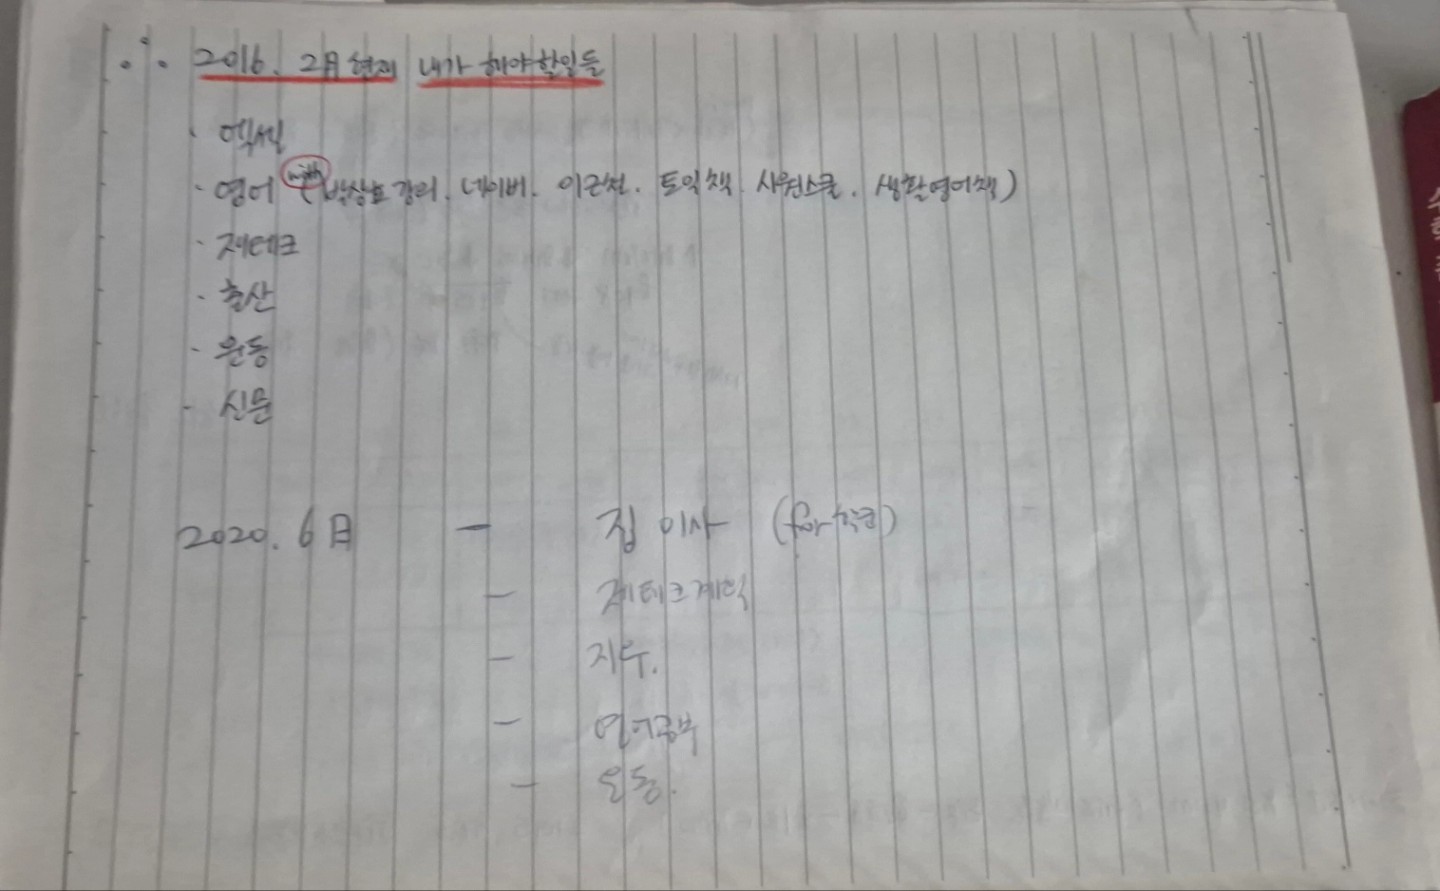 ∴ 2016. 2月 현재 내가 해야할일들
· 엑셀
· 영어 with (박상효 강의. 네이버. 이근철. 토익책. 시원스쿨. 생활영어책)
· 재테크
· 출산
· 운동
- 신문
2020. 6月 - 집 이사 (for 학군)
- 재테크계획
- 지우.
- 영어공부
- 운동.